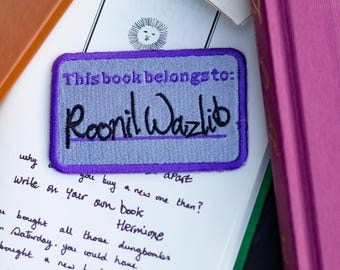 This book belongs to:
Roonil Wazlib
why you buy a new one then?
apart
write on your own book
Hermione
bought all those dungbombs
on Saturday. you could have
bought a new